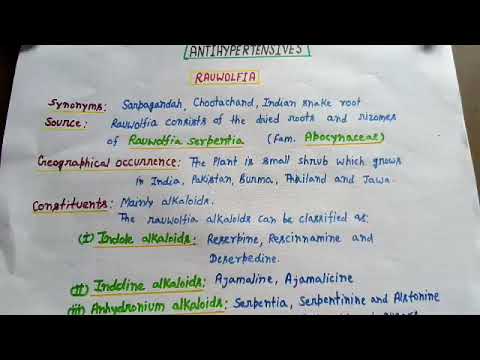 ANTIHYPERTENSIVES
RAUWOLFIA
Synonyms: Sarpagandah, Chootachand, Indian snake root
Source: Rauwolfia consists of the dried roots and rizomes
of Rauwolfia serpentia (Fam. Apocynaceae)
Geographical occurrence: The Plant is small shrub which grows
in India, Pakistan, Burma, Thailand and Jawa.
Constituents: Mainly alkaloids.
The rauwolfia alkaloids can be classified as:
(i) Indole alkaloids: Reserpine, Rescinnamine and
Deserpedine.
(ii) Indoline alkaloids: Ajamaline, Ajamalicine
(iii) Anhydronium alkaloids: Serpentia, Serpentinine and Alstonine